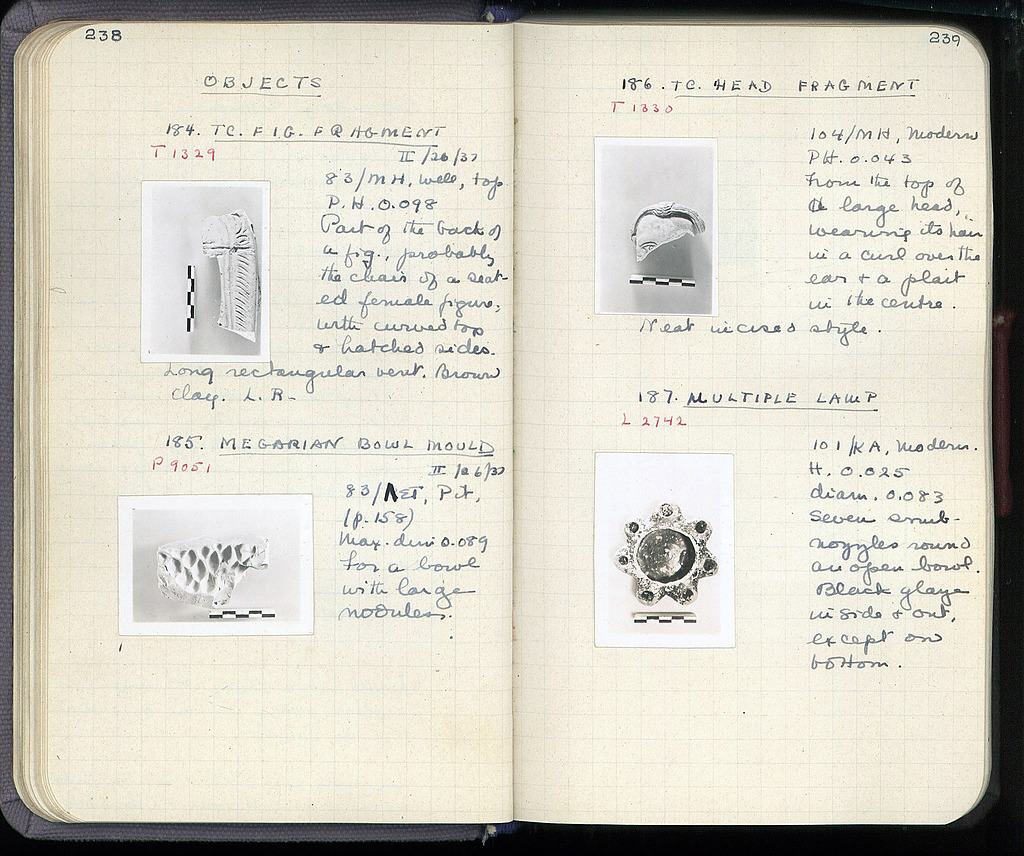 238
OBJECTS
184. TC. FIG. FRAGMENT
T 1329
II/26/37
83/MH, well, top
P.H. 0.098
Part of the back of
a fig., probably
the chair of a seat-
ed female figure,
with curved top
& hatched sides.
Long rectangular vent. Brown
clay. L. R-
185. MEGARIAN BOWL MOULD
P 9051
II/26/37
83/ Pit,
(p. 158)
Max. dim 0.089
For a bowl
with large
nodules.
239
186. TC. HEAD FRAGMENT
T 1330
104/MH, Modern
PH. 0.043
From the top of
a large head,
wearing its hair
in a curl over the
ear & a plait
in the centre.
Neat incised style.
187. MULTIPLE LAMP
L 2742
101/KA, Modern.
H. 0.025
diam. 0.083
Seven
nozzles round
an open bowl.
Black glaze
inside & out,
except on
bottom.